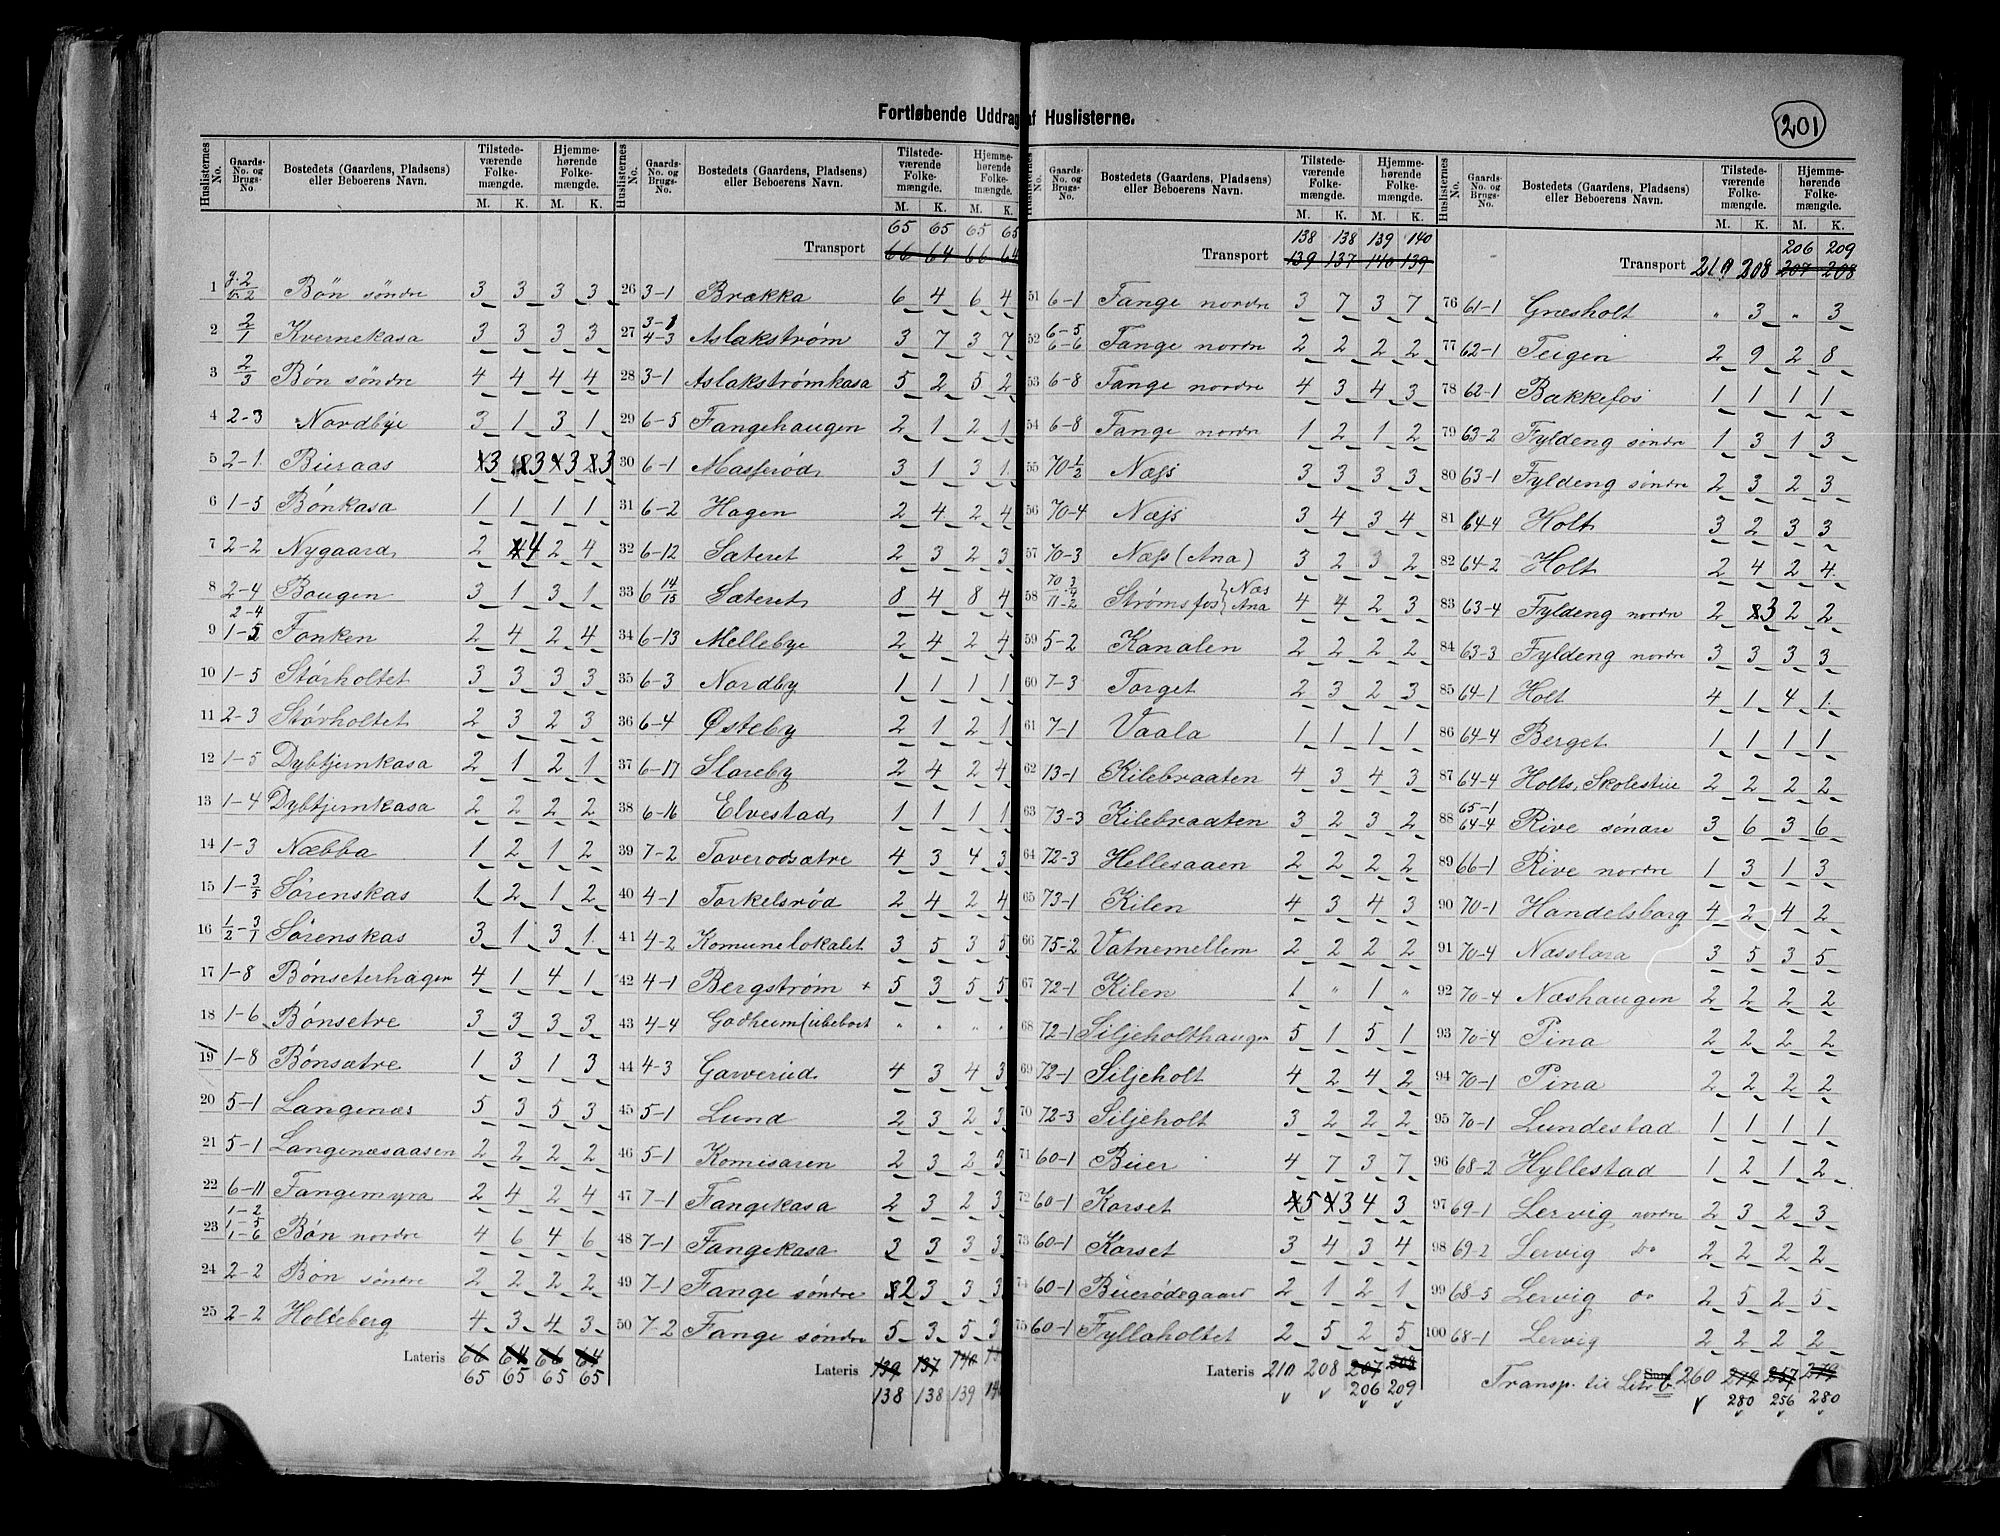 Fortløbende Uddrag af Huslisterne.
201
Huslisternes No. Gaards-No. og Brugs-No. Bostedets (Gaardens, Pladsens) eller Beboerens Navn. Tilstedeværende Folkemængde. Hjemmehørende Folkemængde.
M. K. M. K.
1 g. 2 Bøn söndre 3 3 3 3
2 2/1 Kvernekasa 3 3 3 3
3 2/3 Bön söndre 4 4 4 4
4 2-3 Nordbye 3 1 3 1
5 2-1 Bieraas 3 3 3 3
6 1-5 Bönkasa 1 1 1 1
7 2-2 Nygaard 2 4 2 4
8 2-4 Baugen 3 1 3 1
9 2-4 1-5 Fonken 2 4 2 4
10 1-5 Störholtet 3 3 3 3
11 2-3 Störholtet 2 3 2 3
12 1-5 Dybtjernkasa 2 1 2 1
13 1-4 Dybtjernkasa 2 2 2 2
14 1-3 Næbba 1 2 1 2
15 1-3/5 Sørenskas 1 2 1 2
16 1/2-3/1 Sørenskas 3 1 3 1
17 1-8 Bönseterhagen 4 1 4 1
18 1-6 Bönsetre 3 3 3 3
19 1-8 Bönsætre 1 3 1 3
20 5-1 Langenæs 5 3 5 3
21 5-1 Langenæsaasen 2 2 2 2
22 6-11 Fangemyra 2 4 2 4
23 1-2 1-5 1-6 Bön nordre 4 6 4 6
24 2-2 Bön söndre 2 2 2 2
25 2-2 Holteberg 4 3 4 3
Lateris 66 64 66 64
65 65 65 65
Huslisternes No. Gaards-No. og Brugs-No. Bostedets (Gaardens, Pladsens) eller Beboerens Navn. Tilstedeværende Folkemængde. Hjemmehørende Folkemængde.
M. K. M. K.
65 65 65 65
Transport 66 64 66 64
26 3-1 Brækka 6 4 6 4
27 3-1 4-3 Aslakstrøm 3 7 3 7
28 3-1 Aslakstrømkasa 5 2 5 2
29 6-5 Fangehaugen 2 1 2 1
30 6-1 Masserød 3 1 3 1
31 6-2 Hagen 2 4 2 4
32 6-12 Sæteret 2 3 2 3
33 6 14/15 Sæteret 8 4 8 4
34 6-13 Mellebye 2 4 2 4
35 6-3 Nordby 1 1 1 1
36 6-4 Østeby 2 1 2 1
37 6-17 Storeby 2 4 2 4
38 6-16 Elvestad 1 1 1 1
39 7-2 Taverodsætre 4 3 4 3
40 4-1 Torkelsrød 2 4 2 4
41 4-2 Komunelokalet 3 5 3 5
42 4-1 Bergstrøm + 5 3 5 5
43 4-4 Godheim (ubeboet " " " "
44 4-3 Garverud 4 3 4 3
45 5-1 Lund 2 3 2 3
46 5-1 Komisaren 2 3 2 3
47 7-1 Fangekasa 2 3 2 3
48 7-1 Fangekasa 3 3 3 3
49 7-1 Fange söndre 2 3 3 3
50 7-2 Fange söndre 5 3 5 3
Lateris 139 137 140
138 138 139
Huslisternes No. Gaards-No. og Brugs-No. Bostedets (Gaardens, Pladsens) eller Beboerens Navn. Tilstedeværende Folkemængde. Hjemmehørende Folkemængde.
M. K. M. K.
138 138 139 140
Transport 139 137 140 139
51 6-1 Fange nordre 3 7 3 7
52 6-5 6-6 Fange nordre 2 2 2 2
53 6-8 Fange nordre 4 3 4 3
54 6-8 Fange nordre 1 2 1 2
55 70-1/2 Næss 3 3 3 3
56 70-4 Næss 3 4 3 4
57 70-3 Næss (Ana) 3 2 3 2
58 Strømsfos { Næs Ana 4 4 2 3
59 5-2 Kanalen 2 2 2 2
60 7-3 Torget 2 3 2 3
61 7-1 Vaala 1 1 1 1
62 13-1 Kilebraaten 4 3 4 3
63 73-3 Kilebraaten 3 2 3 2
64 72-3 Hellesaaen 2 2 2 2
65 73-1 Kilen 4 3 4 3
66 75-2 Vatnemellem 2 2 2 2
67 72-1 Kilen 1 " 1 "
68 72-1 Siljeholthaugen 5 1 5 1
69 72-1 Siljeholt 4 2 4 2
70 72-3 Siljeholt 3 2 2 2
71 60-1 Buer 4 7 3 7
72 60-1 Korset 5 3 4 3
73 60-1 Korset 3 4 3 4
74 60-1 Buerødegaard 2 1 2 1
75 60-1 Fyllaholtet 2 5 2 5
Lateris 210 208 207 208
206 209
Huslisternes No. Gaards-No. og Brugs-No. Bostedets (Gaardens, Pladsens) eller Beboerens Navn. Tilstedeværende Folkemængde. Hjemmehørende Folkemængde.
M. K. M. K.
206 209
Transport 219 208 207 208
76 61-1 Gresholt " 3 " 3
77 62-1 Teigen 2 9 2 8
78 62-1 Bakkefos 1 1 1 1
79 63-2 Fyldeng söndre 1 3 1 3
80 63-1 Fyldeng söndre 2 3 2 3
81 64-4 Holt 3 2 3 3
82 64-2 Holt 2 4 2 4
83 63-4 Fyldeng nordre 2 3 2 2
84 63-3 Fyldeng nordre 3 3 3 3
85 64-1 Holt 4 1 4 1
86 64-4 Berget 1 1 1 1
87 64-4 Holts Skolestue 2 2 2 2
88 65-1 64-4 Rive söndre 3 6 3 6
89 66-1 Rive nordre 1 3 1 3
90 70-1 Handelsborg 4 2 4 2
91 70-4 Næsslæra 3 5 3 5
92 70-4 Næshaugen 2 2 2 2
93 70-4 Pina 2 2 2 2
94 70-1 Pina 2 2 2 2
95 70-1 Lundestad 1 1 1 1
96 68-2 Hyllestad 1 2 1 2
97 69-1 Lervig nordre 2 3 2 3
98 69-2 Lervig do 2 2 2 2
99 68-5 Lervig do 2 5 2 5
100 68-1 Lervig 2 2 2 2
Transp. til Litr b. 260 279 257 279
280 256 280